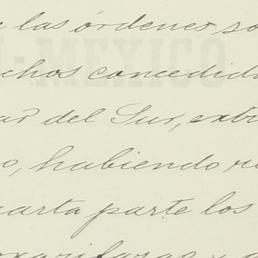 las órdenes so
chos concedid
del Sur, extr
o, habiendo re
arta parte los